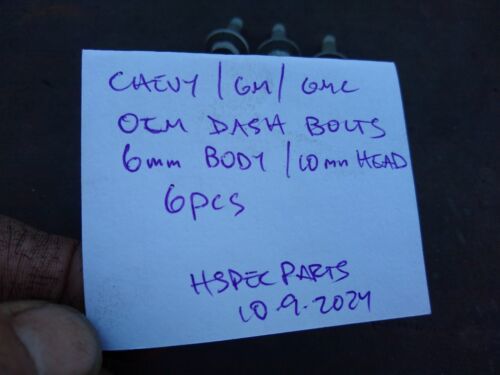 CHEVY / GM / GMC
OEM DASH BOLTS
6mm BODY / 10mm HEAD
6pcs
HSPEC PARTS
10-9-2024